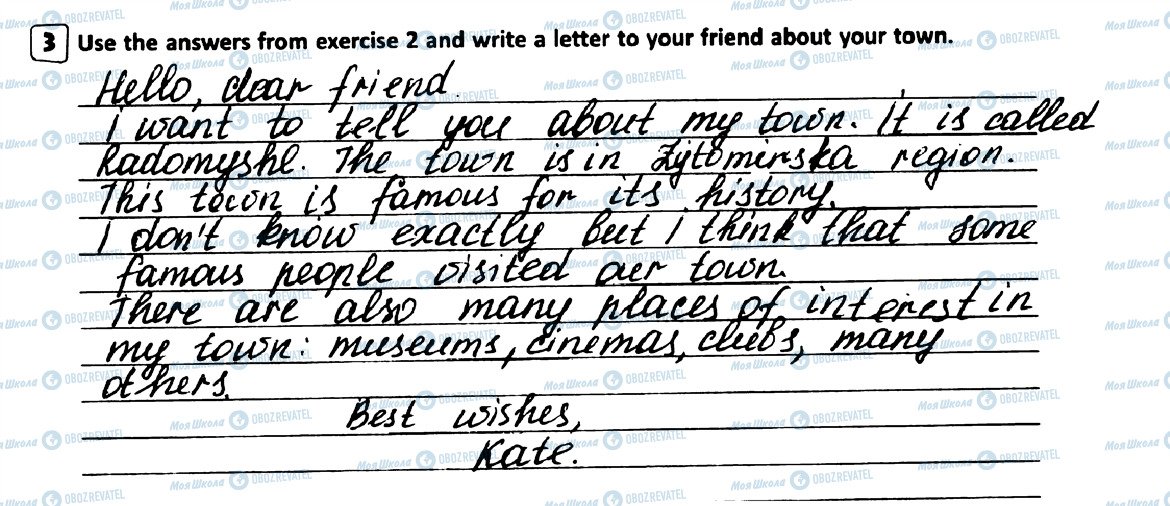 3 Use the answers from exercise 2 and write a letter to your friend about your town.
Hello, dear friend.
I want to tell you about my town. It is called
Radomyshl. The town is in Zytomirska region.
This town is famous for its history.
I don't know exactly but I think that some
famous people visited our town.
There are also many places of interest in
my town: museums, cinemas, clubs, many
others.
Best wishes,
Kate.
Моя Школа OBOZREVATEL